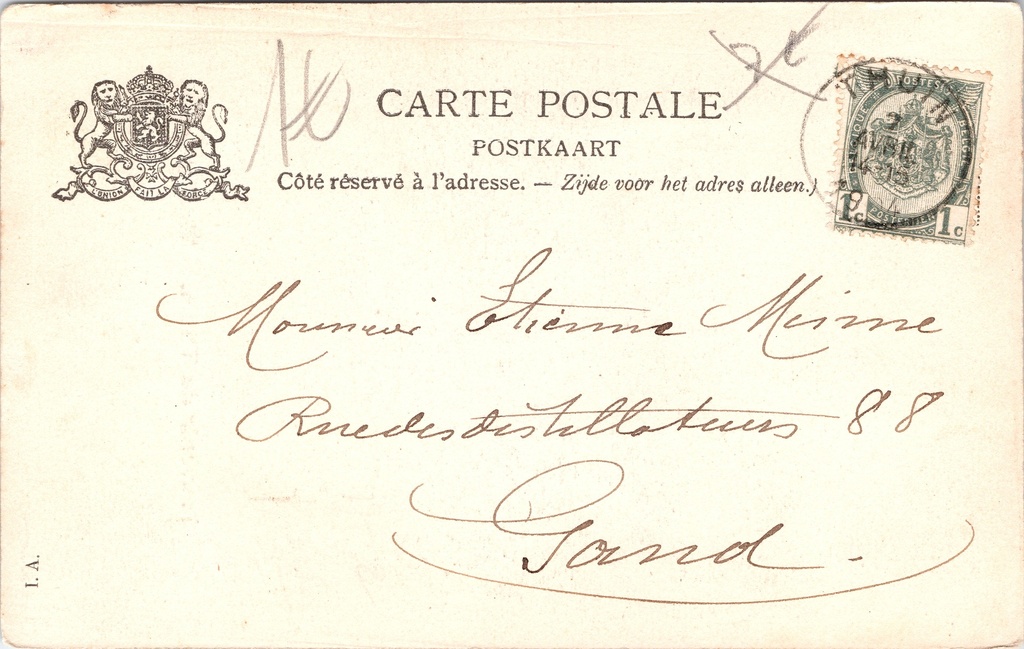 CARTE POSTALE
POSTKAART
Côté réservé à l'adresse. — Zijde voor het adres alleen.)
L'UNION FAIT LA FORCE
THUIN
1c 1c
Monsieur Etienne Minne
Rue des distillateurs 88
Gand
I. A.